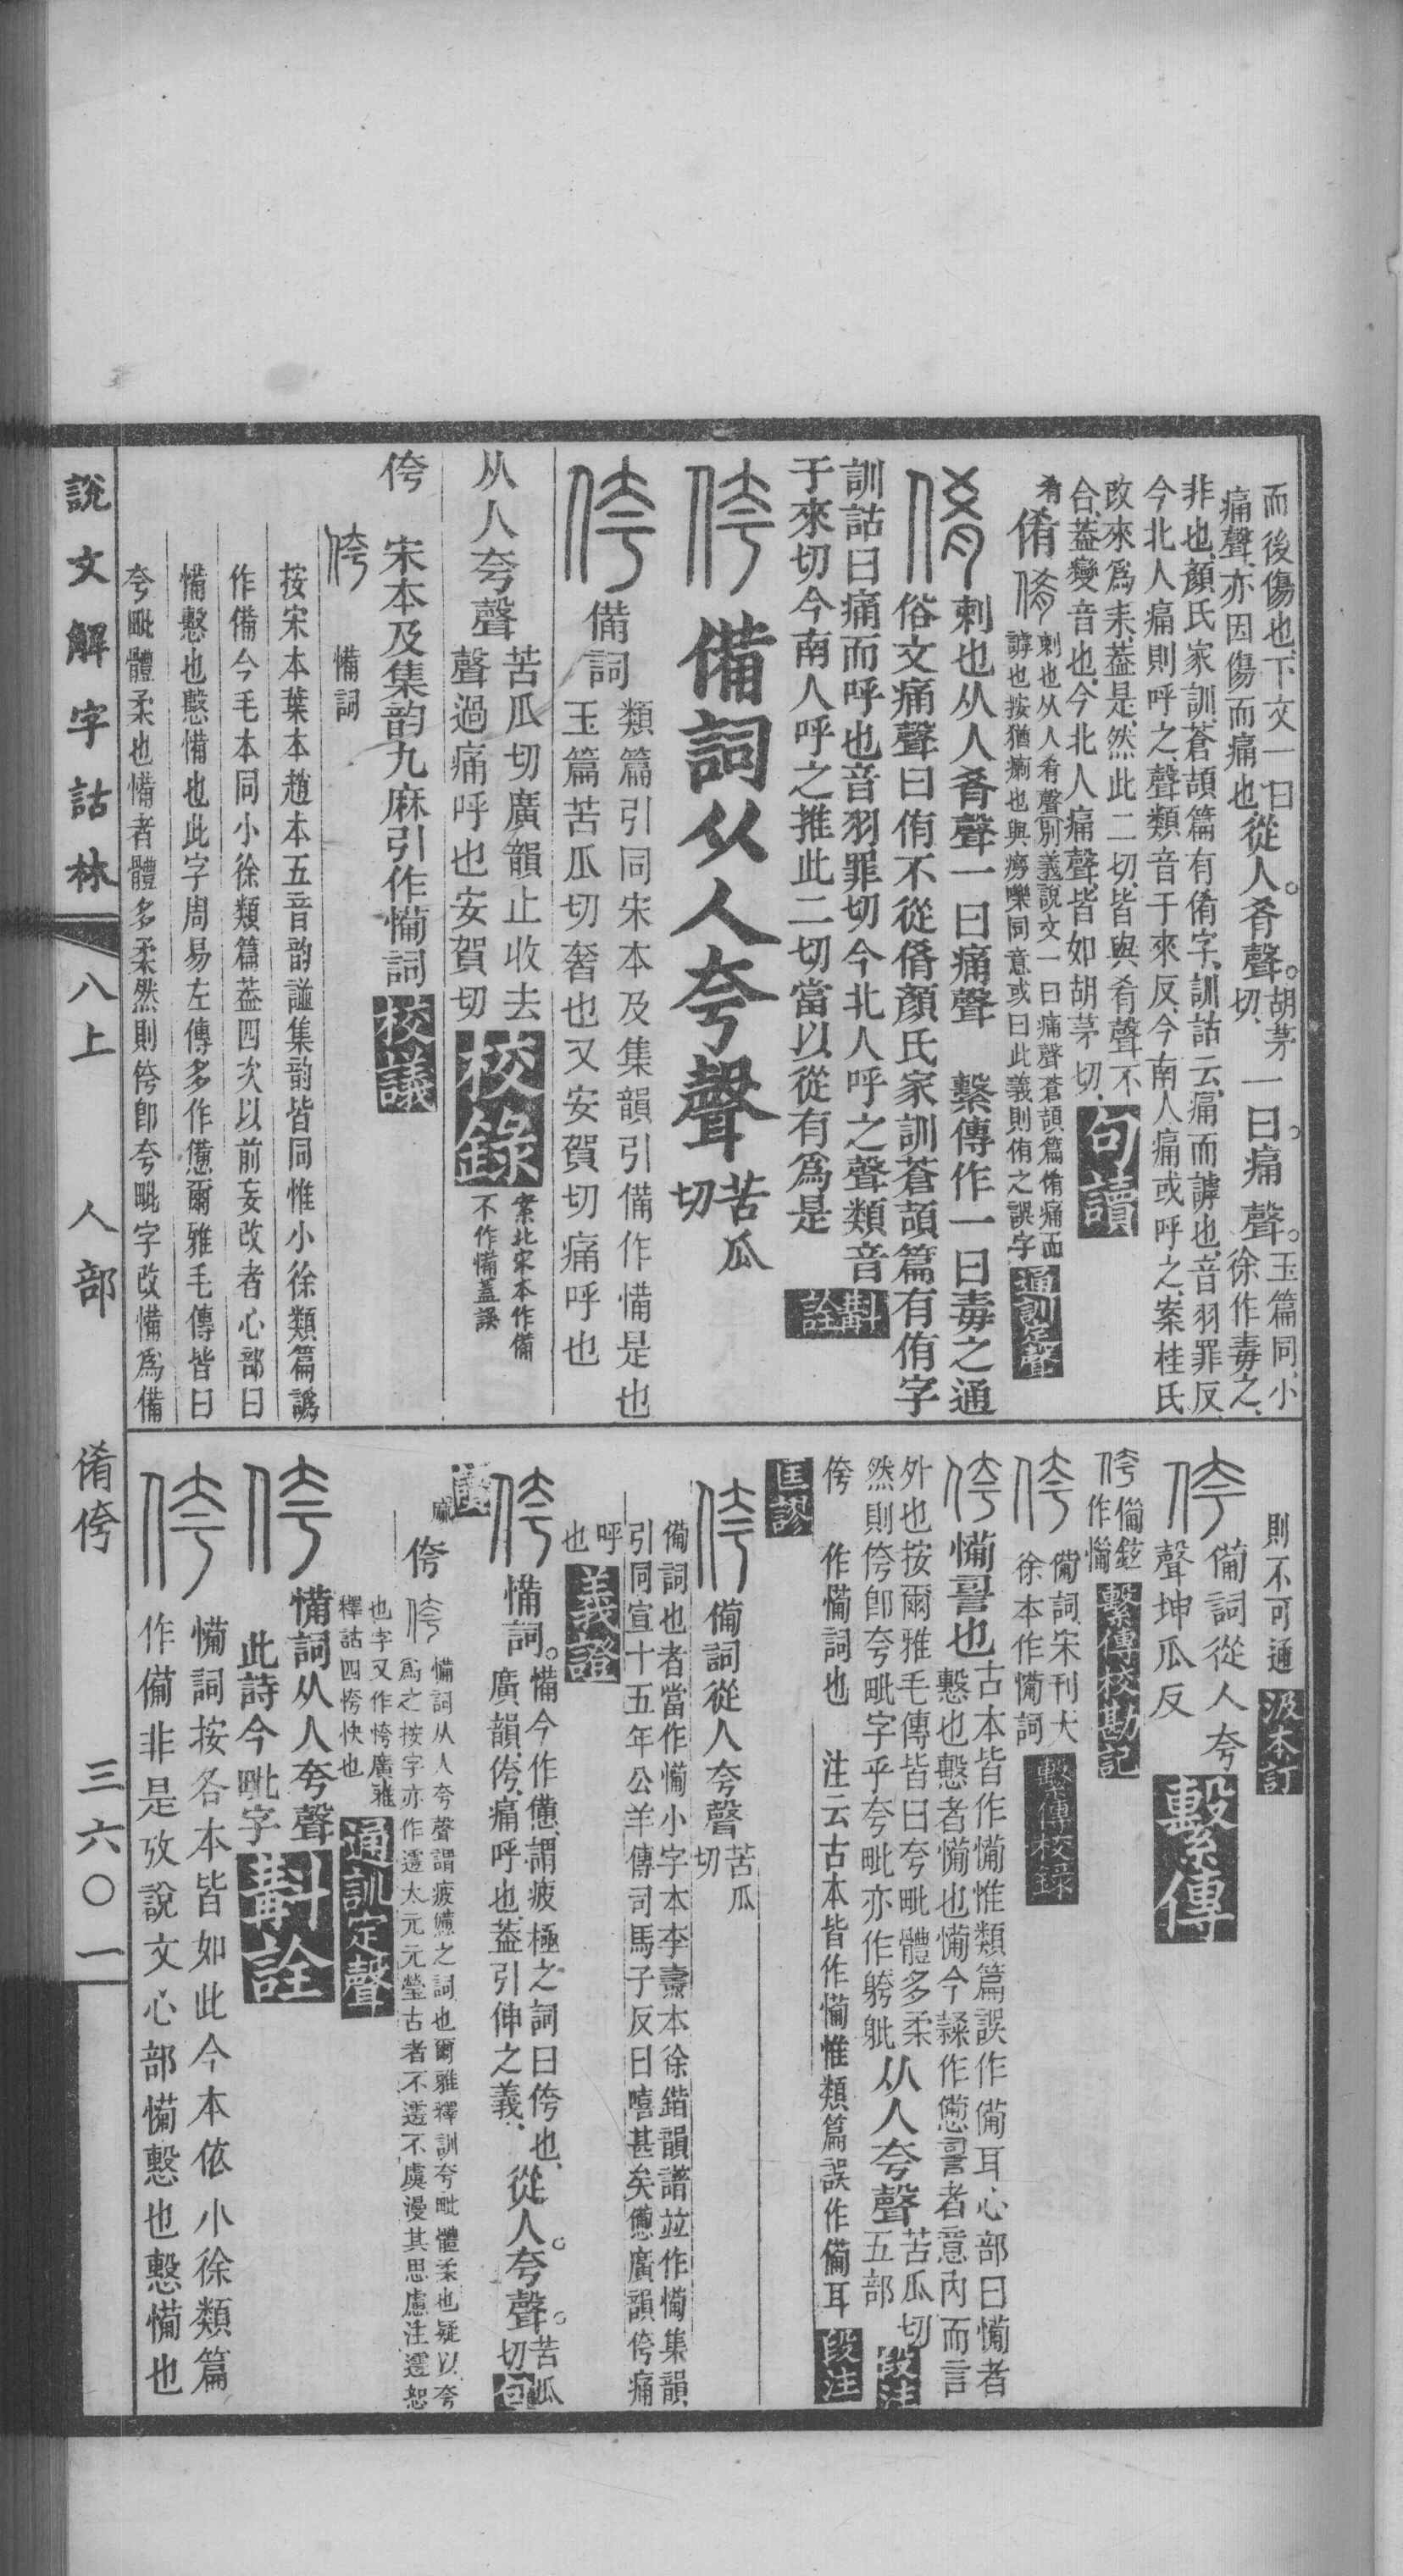 而後傷也下文一曰從人肴聲胡茅切一曰痛聲玉篇同小
痛聲亦因傷而痛也徐作毒之
非也顏氏家訓蒼頡篇有侑字訓詁云痛而謼也音羽罪反
今北人痛則呼之聲類音于來反今南人痛或呼之案桂氏
改來爲耒葢是然此二切皆與肴聲不
合葢變音也今北人痛聲皆如胡茅切句讀
肴㑾
刺也从人肴聲別義說文一曰痛聲蒼頡篇侑痛而
謼也按猶痏也與㾕嚛同意或曰此義則侑之誤字通訓定聲
刺也从人肴聲一曰痛聲 繫傳作一曰毒之通
俗文痛聲曰侑不從㑾顏氏家訓蒼頡篇有侑字
訓詁曰痛而呼也音羽罪切今北人呼之聲類音
于來切今南人呼之推此二切當以從有爲是斠詮
備詞从人夸聲苦瓜切
備詞類篇引同宋本及集韻引備作㤳是也
玉篇苦瓜切奢也又安賀切痛呼也
从人夸聲苦瓜切廣韻止收去
聲過痛呼也安賀切校錄
案北宋本作備
不作㤳蓋誤
侉 宋本及集韵九麻引作㤳詞校議
㤳詞
按宋本葉本趙本五音韵譜集韵皆同惟小徐類篇譌
作備今毛本同小徐類篇葢四次以前妄改者心部曰
㤳憨也憨㤳也此字周易左傳多作憊爾雅毛傳皆曰
夸毗體柔也㤳者體多柔然則侉卽夸毗字改㤳爲備
則不可通汲本訂
備詞從人夸
聲坤瓜反繫傳
備鉉
作㤳繫傳校勘記
備詞宋刊大
徐本作㤳詞繫傳校錄
㤳䛐也古本皆作㤳惟類篇誤作備耳心部曰㤳者
憨也憨者㤳也㤳今隸作憊䛐者意內而言
外也按爾雅毛傳皆曰夸毗體多柔
然則侉卽夸毗字乎夸毗亦作䠸𨈚从人夸聲苦瓜切
五部段注
侉 作㤳詞也 注云古本皆作㤳惟類篇誤作備耳段注
匡謬
備詞從人夸聲苦瓜切
備詞也者當作㤳小字本李燾本徐鍇韻譜竝作㤳集韻
引同宣十五年公羊傳司馬子反曰嘻甚矣憊廣韻侉痛
呼也義證
㤳詞㤳今作憊謂疲極之詞曰侉也從人夸聲苦瓜切句
廣韻侉痛呼也葢引伸之義
讀
侉
㤳詞从人夸聲謂疲憊之詞也爾雅釋訓夸毗體柔也疑以夸
爲之按字亦作㦛太元元瑩古者不㦛不虞漫其思慮注㦛恕
也字又作恗廣雅
釋詁四恗怏也通訓定聲
㤳詞从人夸聲
此詩今毗字斠詮
㤳詞按各本皆如此今本依小徐類篇
作備非是攷說文心部㤳憨也憨㤳也
說文解字詁林 八上 人部 㑾侉 三六〇一